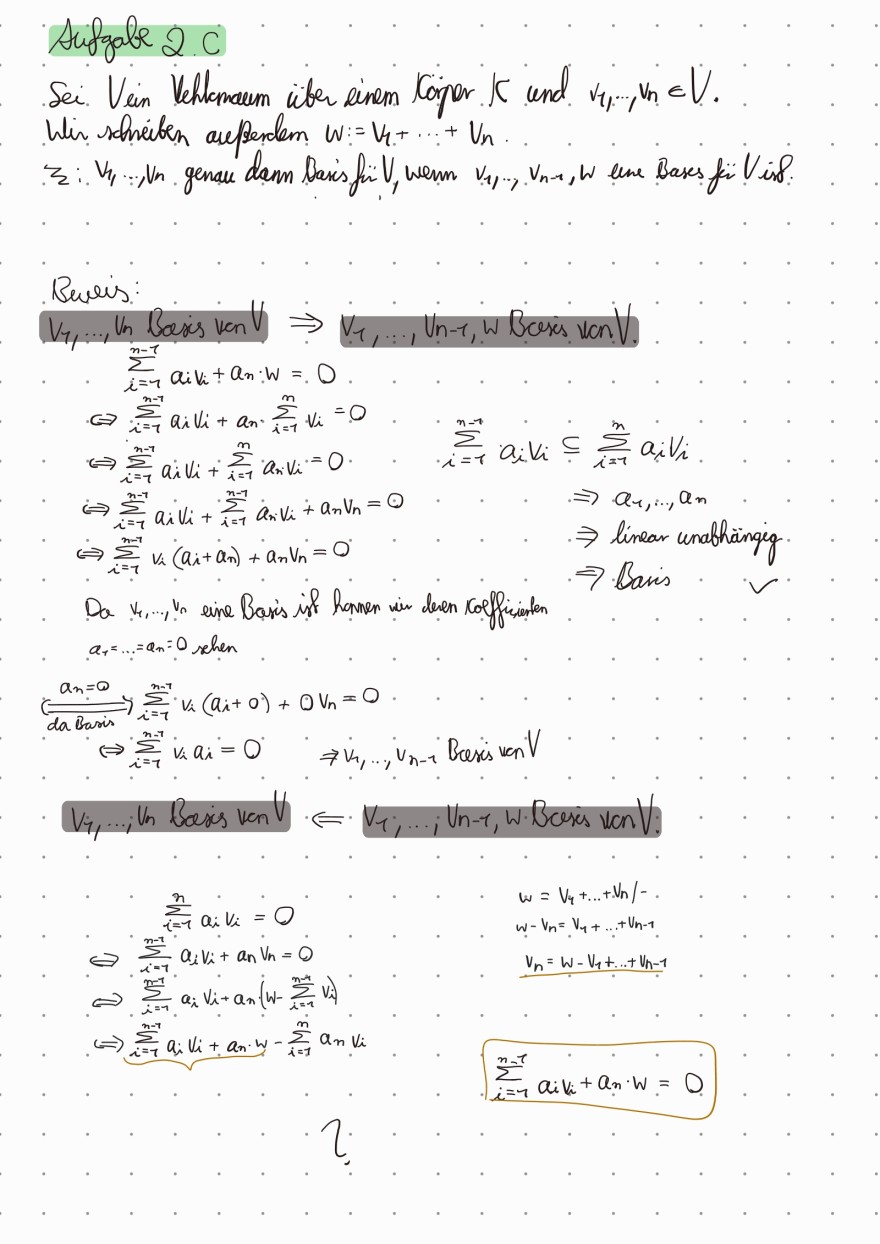 Aufgabe 2.c
Sei V ein Vektorraum über einem Körper K und v₁,...,vₙ ∈ V.
Wir schreiben außerdem w := v₁ + ... + vₙ.
Zz: v₁,...,vₙ genau dann Basis für V, wenn v₁,..., vₙ₋₁, w eine Basis für V ist.
Beweis:
v₁,...,vₙ Basis von V ⇒ v₁,...,vₙ₋₁, w Basis von V.
∑ᵢ₌₁ⁿ⁻¹ aᵢvᵢ + aₙ·w = 0
⇔ ∑ᵢ₌₁ⁿ⁻¹ aᵢvᵢ + aₙ· ∑ᵢ₌₁ⁿ vᵢ = 0
⇔ ∑ᵢ₌₁ⁿ⁻¹ aᵢvᵢ + ∑ᵢ₌₁ⁿ aₙvᵢ = 0
⇔ ∑ᵢ₌₁ⁿ⁻¹ aᵢvᵢ + ∑ᵢ₌₁ⁿ⁻¹ aₙvᵢ + aₙvₙ = 0
⇔ ∑ᵢ₌₁ⁿ⁻¹ vᵢ (aᵢ+aₙ) + aₙvₙ = 0
∑ᵢ₌₁ⁿ⁻¹ aᵢvᵢ ⊆ ∑ᵢ₌₁ⁿ aᵢvᵢ
⇒ a₁,...,aₙ
⇒ linear unabhängig
⇒ Basis ✓
Da v₁,...,vₙ eine Basis ist können wir deren Koeffizienten
a₁=...=aₙ=0 sehen
aₙ=0
⇔ ∑ᵢ₌₁ⁿ⁻¹ vᵢ (aᵢ+0) + 0vₙ = 0
da Basis
⇔ ∑ᵢ₌₁ⁿ⁻¹ vᵢ aᵢ = 0 ⇒ v₁,...,vₙ₋₁ Basis von V
v₁,...,vₙ Basis von V ⇐ v₁,...,vₙ₋₁, w Basis von V.
∑ᵢ₌₁ⁿ aᵢvᵢ = 0
⇔ ∑ᵢ₌₁ⁿ⁻¹ aᵢvᵢ + aₙvₙ = 0
⇔ ∑ᵢ₌₁ⁿ⁻¹ aᵢvᵢ + aₙ(w - ∑ᵢ₌₁ⁿ⁻¹ vᵢ)
⇔ ∑ᵢ₌₁ⁿ⁻¹ aᵢvᵢ + aₙ·w - ∑ᵢ₌₁ⁿ aₙvᵢ
w = v₁+...+vₙ /-
w - vₙ = v₁+...+vₙ₋₁
vₙ = w - v₁+...+vₙ₋₁
∑ᵢ₌₁ⁿ⁻¹ aᵢvᵢ + aₙ·w = 0
?